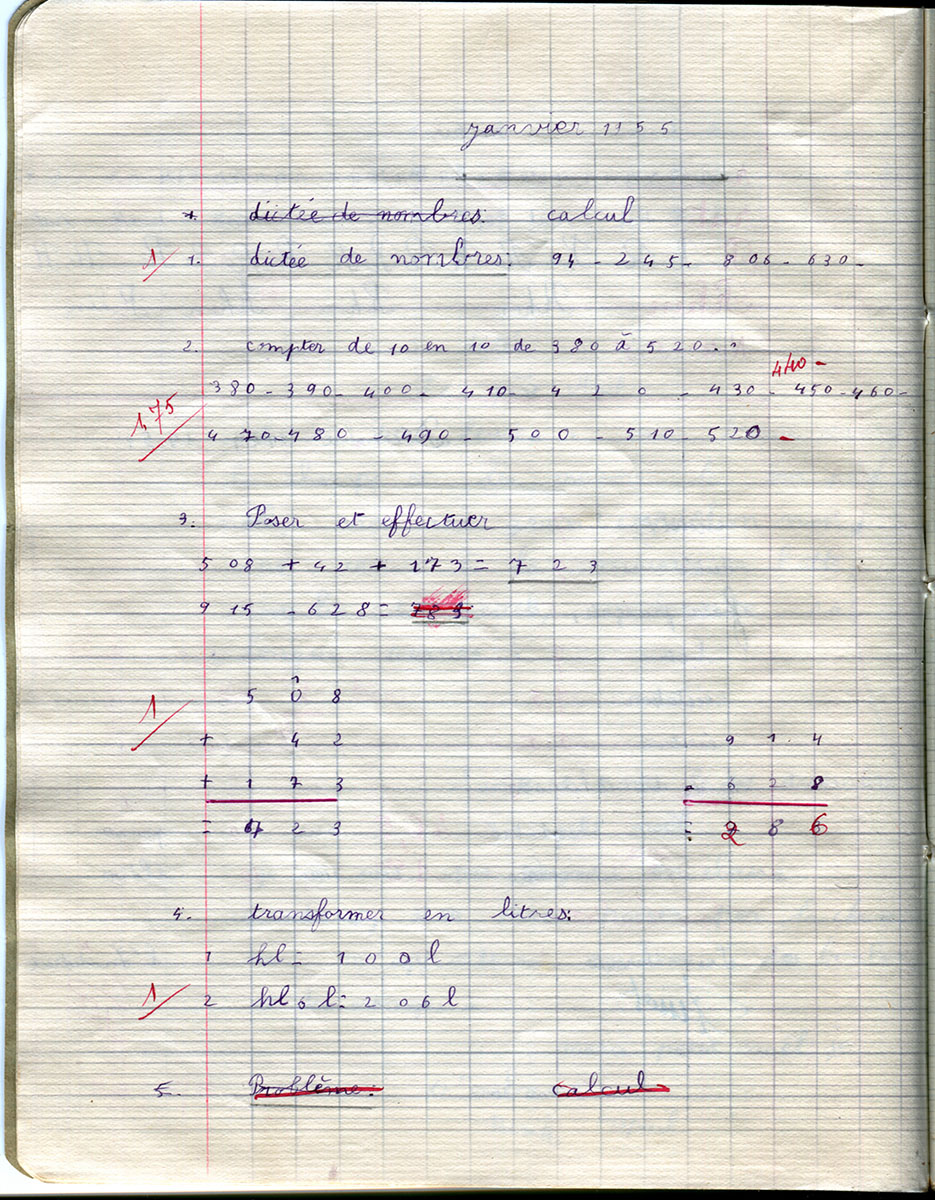 janvier 1955
dictée de nombres. calcul
1 1. dictée de nombres: 94 - 245 - 806 - 630 -
2. compter de 10 en 10 de 380 à 520.
440 -
380 - 390 - 400 - 410 - 420 - 430 - 450 - 460 -
1,75
470 - 480 - 490 - 500 - 510 - 520 -
3. Poser et effectuer
508 + 42 + 173 = 723
915 - 628 =
1 5 0 8
+ 4 2 9 1 4
+ 1 7 3 - 6 2 8
= 7 2 3 = 2 8 6
4. transformer en litres:
1 hl = 100 l
1 2 hl 6 l = 206 l
5. Problème: calcul